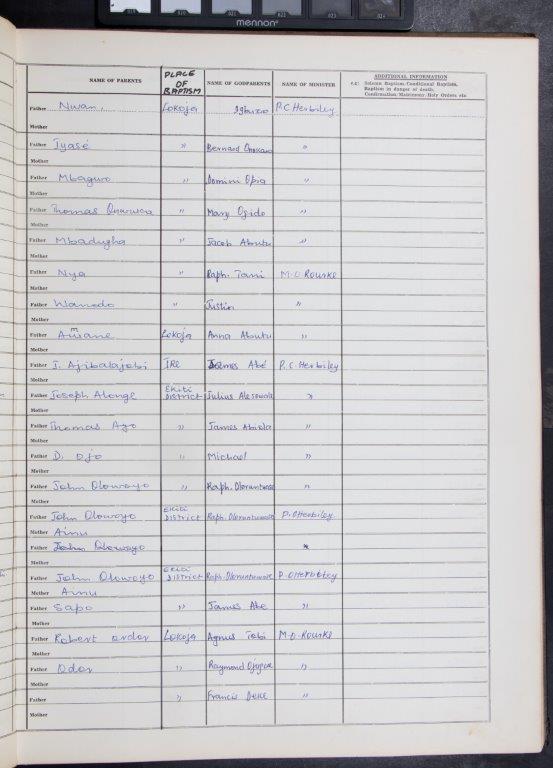 021 022 023 024
mennon
NAME OF PARENTS PLACE OF BAPTISM NAME OF GODPARENTS NAME OF MINISTER ADDITIONAL INFORMATION
e.g: Solemn Baptism, Conditional Baptism,
Baptism in danger of death,
Confirmation, Matrimony, Holy Orders etc
Father Nwan. Lokoja P.C Herbiley
Mother
Father Iyasé " Bernard "
Mother
Father Mbaguro " Domini "
Mother
Father Thomas " Mary "
Mother
Father Mbadugha " Jacob Abutu "
Mother
Father Nya " Raph. Tami M.O. Rourke
Mother
Father Wanedo " Justin "
Mother
Father Lokoja Anna Abutu "
Mother
Father J. Ajibalajobi IRE James Abé P.C. Herbiley
Mother
Father Joseph Alonge EKiti DISTRICT Julius "
Mother
Father Thomas Ayo " James Abiola "
Mother
Father D. Ojo " Michael "
Mother
Father John Olowoyo " Raph. "
Mother
Father John Olowoyo EKiti DISTRICT Raph.
Mother Ainu
Father John Olowoyo
Mother
Father John Olowoyo EKiti DISTRICT Raph.
Mother Ainu
Father Sapo " James Abe "
Mother
Father Robert Lokoja Agnus M.O. Rourke
Mother
Father Odor " Raymond "
Mother
Father " Francis "
Mother